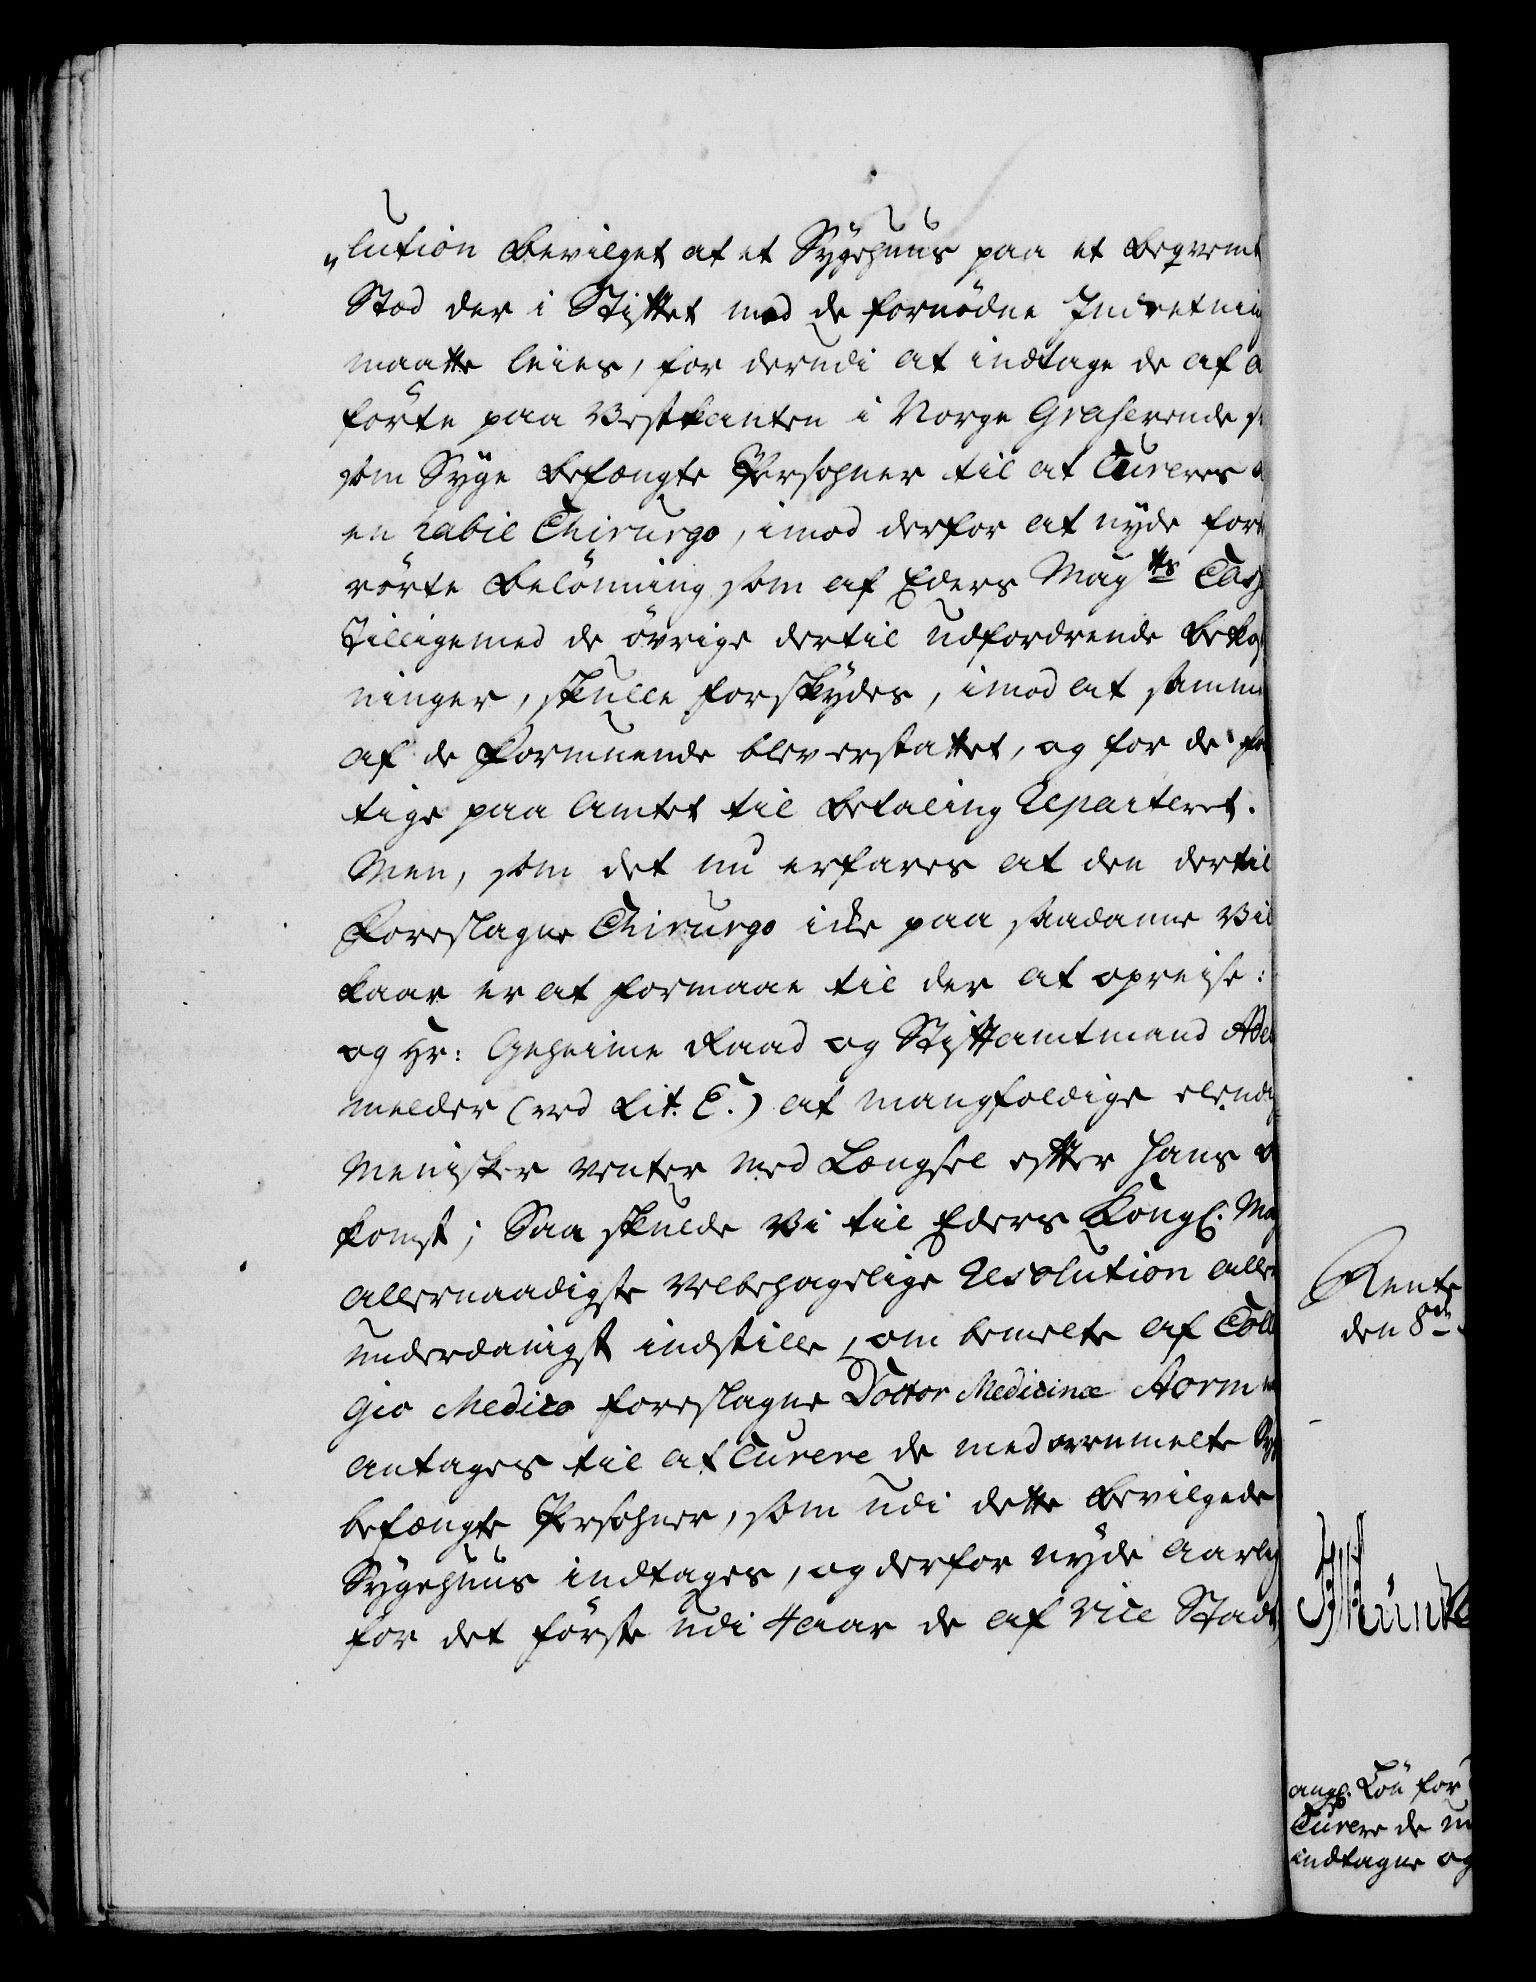 „lution bevilget at et Sygehuus paa et beqvemt
Stæd der i Stiftet med de fornødne Indretning
maatte leies, for derudi at indtage de af
førte paa Vestkanten i Norge Graserende
som Syge befængte Persohner til at Cureres
en habil Chirurgo, imod derfor at nyde for
rörte belönning som af Eders Mayts Casse
Tilligemed de övrige dertil udfordrende bekost
ninger, skulle forskydes, imod at samme
af de Formuende blev erstattet, og for de fat
tige paa Amtet til betaling Reparteret.
Men, som det nu erfares at den dertil
Foreslagne Chirurgo icke paa saadanne Vil
kaar er at formaae til der at opreise:
og Hr: Geheime Raad og Stiftamtmand
melder (ved Lit. E.) at mangfoldige elendig
Menisker venter med Længsel efter hans
komst; Saa skulde Vi til Eders Kongl. May
allernaadigste velbehagelige Resolution aller
underdanigst indstille, om bemelte af Colle
gio Medico foreslagne Doctor Medicinæ
antages til at Curere de med ovenmelte Sy
befængte Persohner, som udi dette bevilgede
Sygehuus indtages, og derfor nyde aarlig
for det første udi 4 aar de af Vice Stadt
Rente
den 8de
angl. Løn for
Curere de
indtagne og